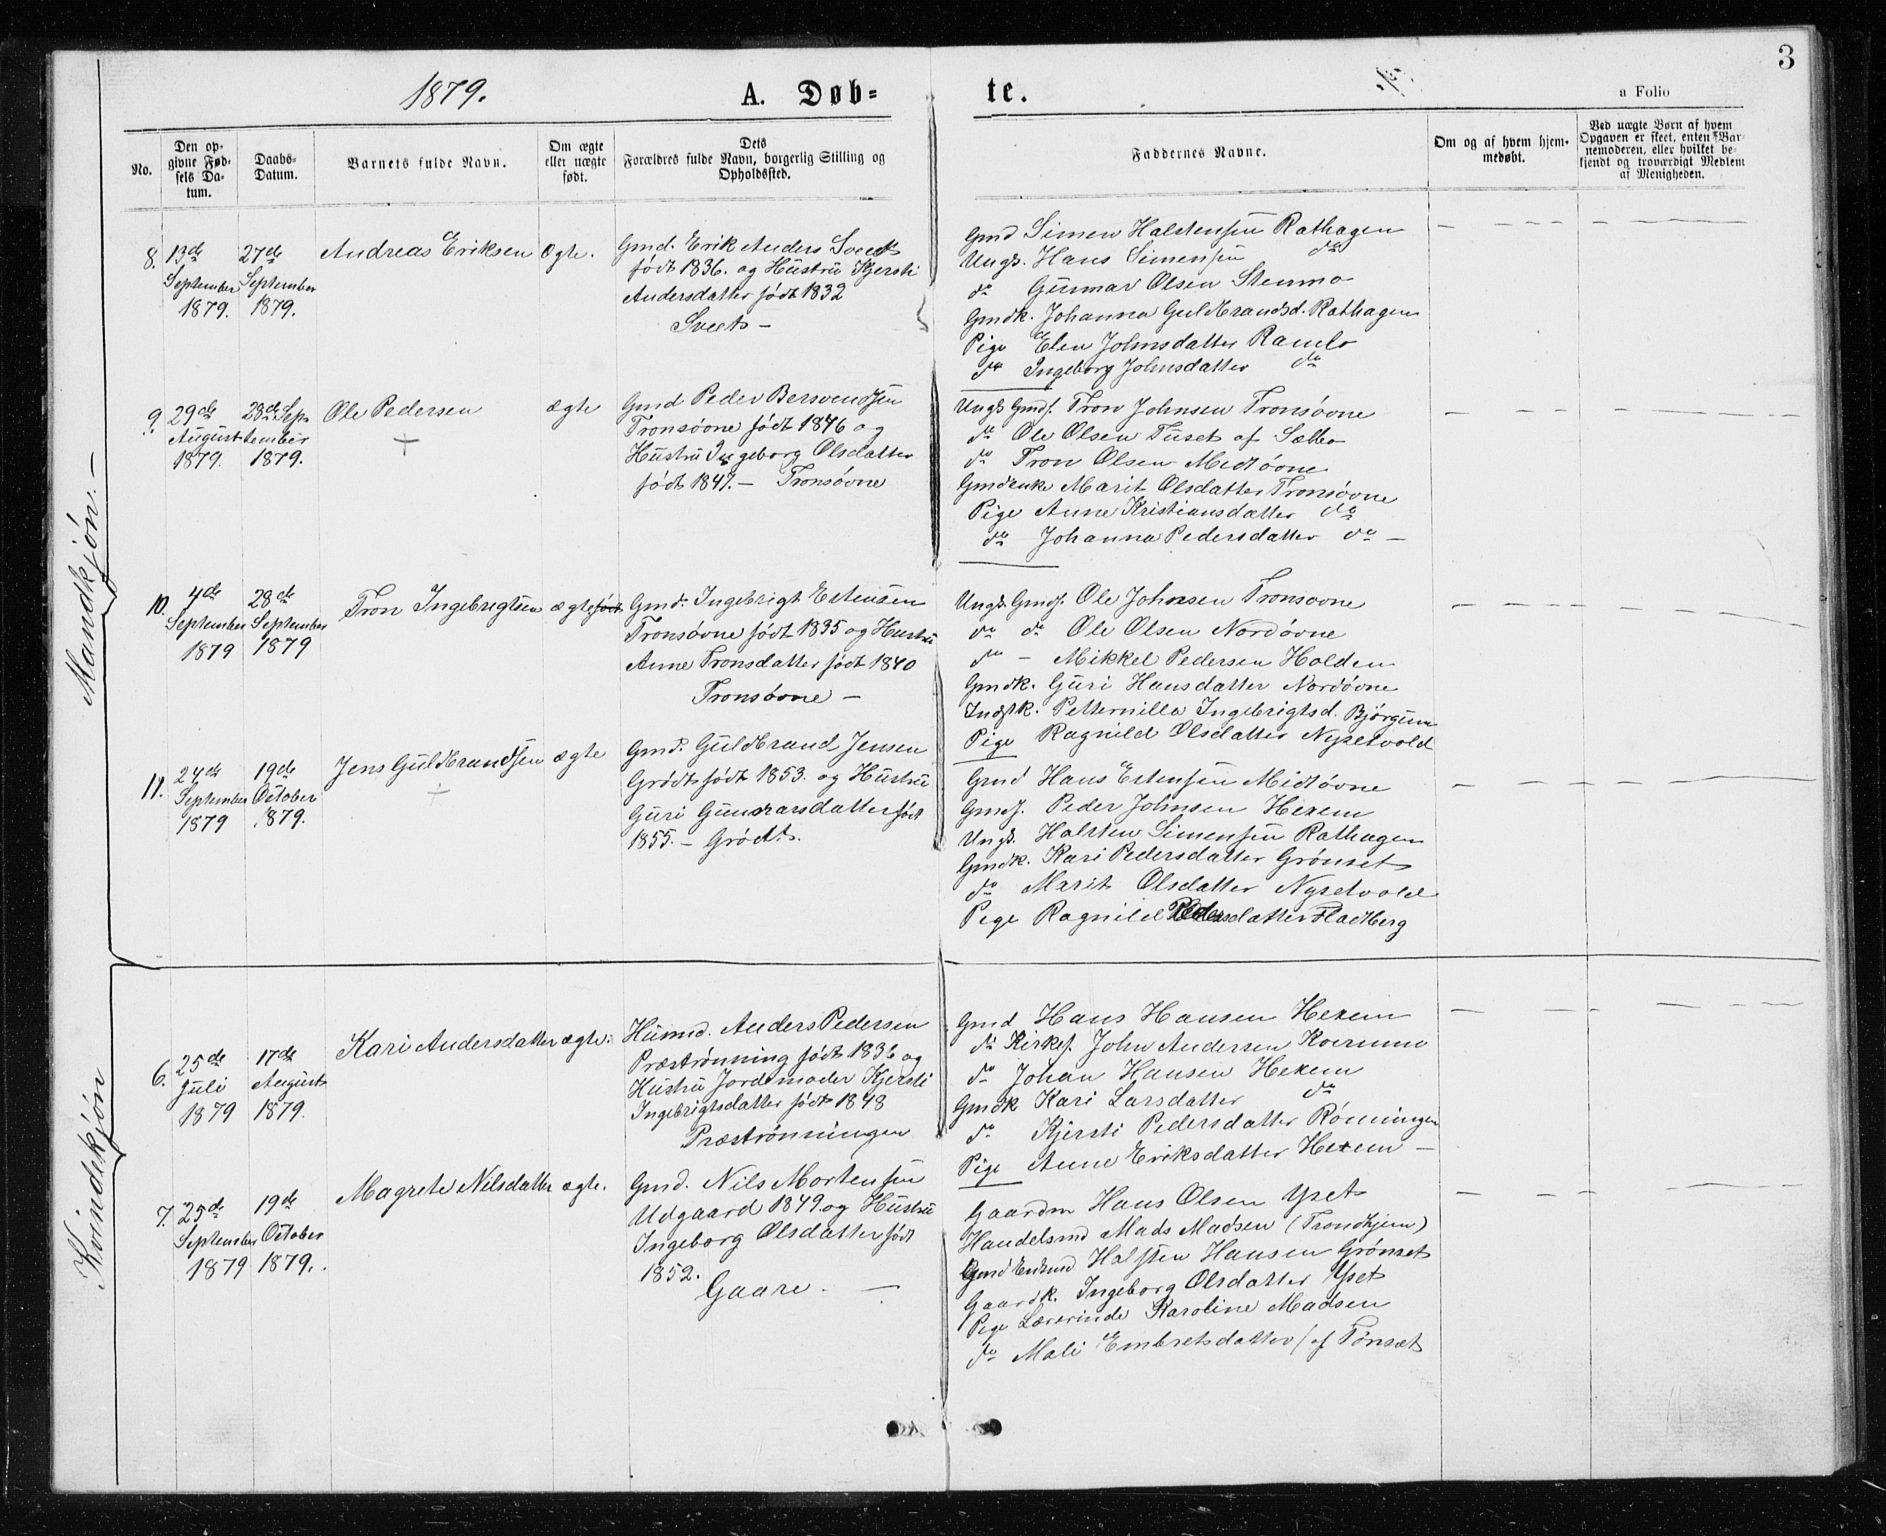 3
1879.
A. Døb-
te.
a Folio
No.
Den op-
givne Fød-
sels Da-
tum.
Daabs-
Datum.
Barnets fulde Navn.
Om ægte
eller uægte
født.
Dets
Forældres fulde Navn, borgerlig Stilling og
Opholdssted.
Faddernes Navne.
Om og af hvem hjem-
medøbt.
Ved uægte Børn af hvem
Opgaven er skeet, enten Bar-
nemoderen, eller hvilket be-
kjendt og troværdigt Medlem
af Menigheden.
Mandkjøn. —
8.
13de
September
1879.
27de
September
1879.
Andreas Eriksen
Ægte.
Gmd. Erik Anders Sveets
født 1836. og Hustru Kjersti
Andersdatter født 1832
Sveets —
Gmd Simen Halstensen Rathagen
Ungk. Hans Simensen do
do Gunnar Olsen Stenmo
Gmdk. Johanna Guldbrandsd. Rathagen
Pige Elen Johnsdatter Ramlo
do Ingeborg Johnsdatter do
9.
29de
August
1879.
28de Sep-
tember
1879.
Ole Pedersen
+
ægte
Gmd Peder Bersvendsen
Tronsøvne født 1846 og
Hustru Ingeborg Olsdatter
født 1847. — Tronsøvne
Ungk Gmds. Tron Johnsen Tronsøvne
do Ole Olsen Tuset af Sælbo
do Tron Olsen Midtøvne
Gmdenke Marit Olsdatter Tronsøvne
Pige Anne Kristiansdatter do
do Johanna Pedersdatter do —
10.
4de
September
1879
28de
September
1879
Tron Ingebrigtsen
ægte født
Gmd. Ingebrigt Estensen
Tronsøvne født 1835 og Hustru
Anne Tronsdatter født 1840
Tronsøvne —
Ungk. Gmds. Ole Johnsen Tronsovne
do do Ole Olsen Nordøvne
do — Mikkel Pedersen Holden
Gmdk. Guri Hansdatter Nordøvne
Indstk. Petternilla Ingebrigtsd. Bjørgum
Pige Ragnild Olsdatter Nysetvold
11.
24de
September
1879
19de
October
1879.
Jens Guldbrandsen
+
ægte
Gmd. Guldbrand Jensen
Grødt født 1853. og Hustru
Guri Gunnarsdatter født
1855. — Grødt.
Gmd Hans Estensen Midtøvne
Gmds. Peder Johnsen Hexem
Ungk. Halsten Simensen Rathagen
Gmdk. Kari Pedersdatter Grønset
do Marit Olsdatter Nysetvold
Pige Ragnild Pedersdatter Fladberg
Kvindekjøn
6.
25de
Juli
1879
17de
August
1879.
Kari Andersdatter
ægte.
Husmd. Anders Pedersen
Præstrønning født 1836 og
Hustru Jordemoder Kjersti
Ingebrigtsdatter født 1848
Præstrønningen
Gmd Hans Hansen Hexem
do Kirkes. John Andersen Kvernmo
do Johan Hansen Hexem
Gmdk Kari Larsdatter do
do Kjersti Pedersdatter Rønningen
Pige Anne Eriksdatter Hexem —
7.
25de
September
1879
19de
October
1879.
Magrete Nilsdatter
ægte.
Gmd. Nils Mortensen
Udgaard 1849. og Hustru
Ingeborg Olsdatter født
1852.
Gaare. —
Gaardm Hans Olsen Yset
Handelsmd Mads Madsen (Trondhjem)
Gmd Enkmd Halsten Hansen Grønset
Gaardk. Ingeborg Olsdatter Yset
Pige Lærerinde Karoline Madsen
do Mali Embretsdatter / af Tønset